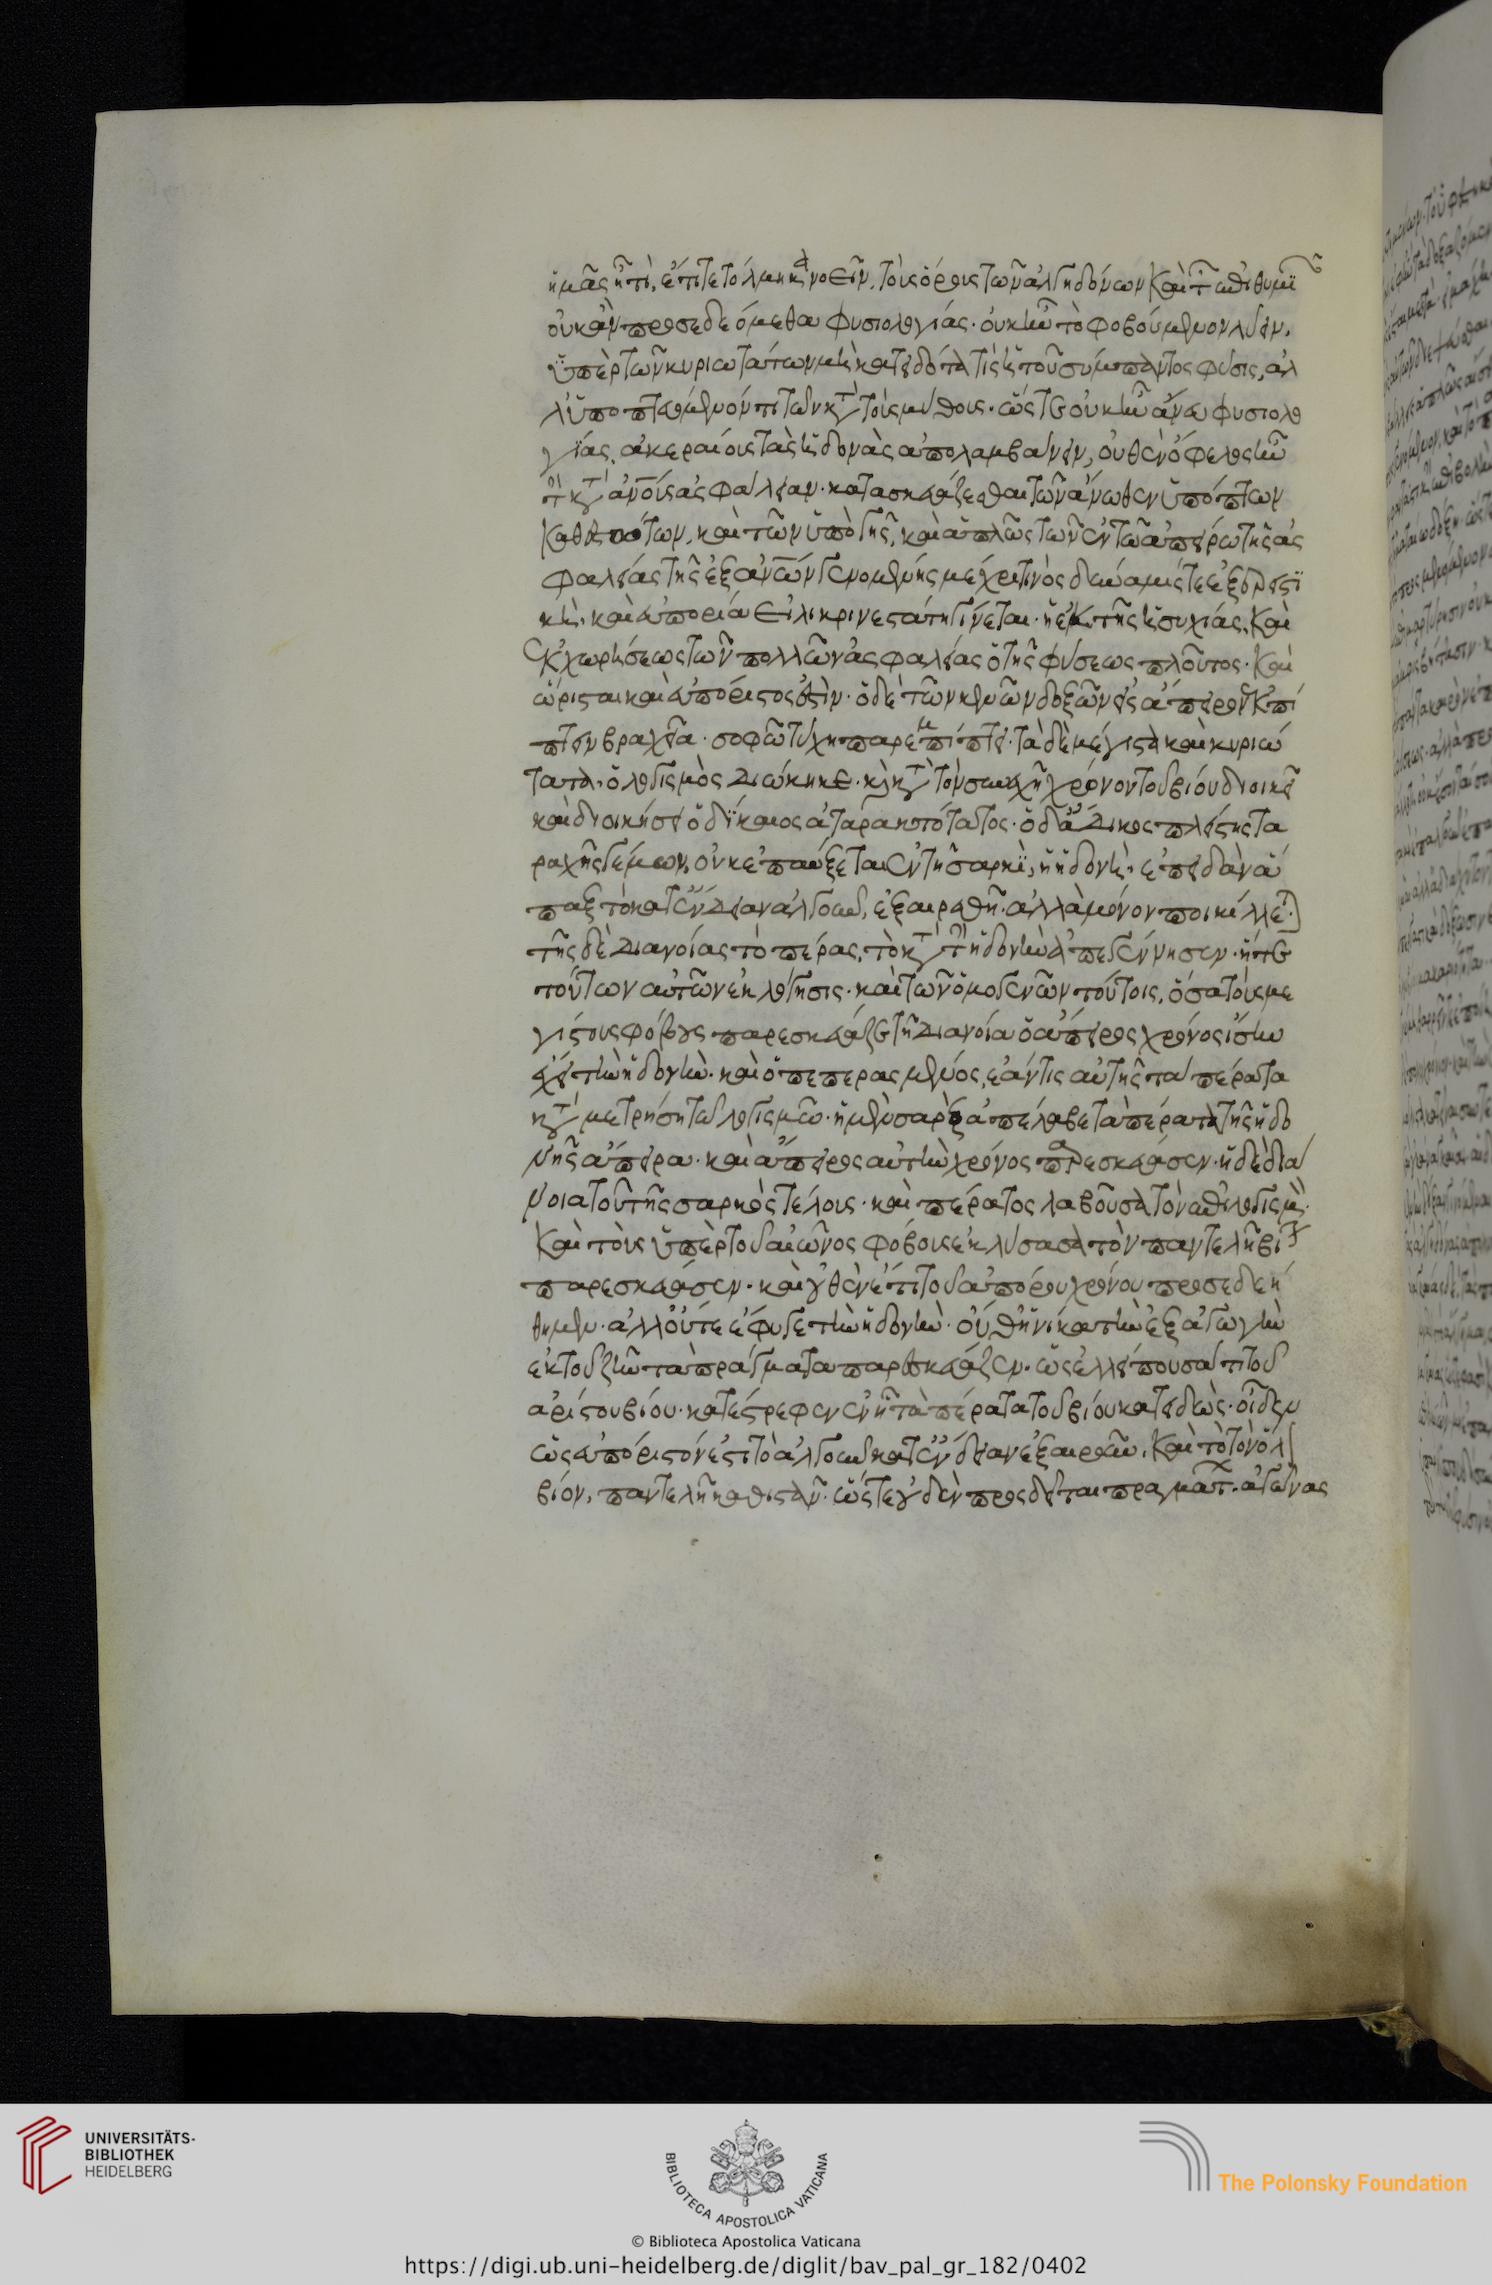 ἡμᾶς ἦ τὶ, ἔπι τε τὸ λμηκανοεῖν, τοὺς ὅρους τῶν ἀλγηδόνων καὶ τῶν ἐπιθυμιῶν
οὐκ ἂν προσεδεόμεθα φυσιολογίας· οὐκ ἦν τὸ φοβούμενον λύειν,
ὑπὲρ τῶν κυριωτάτων μὴ κατειδότα τίς ἡ τοῦ σύμπαντος φύσις, ἀλ
λ' ὑποπτευόμενόν τι τῶν κατὰ τοὺς μύθους· ὥστε οὐκ ἦν ἄνευ φυσιολο
γίας, ἀκεραίους τὰς ἡδονὰς ἀπολαμβάνειν, οὐθὲν ὄφελος ἦν
τὴν κατὰ ἀνους ἀσφάλειαν· κατασκευάζεσθαι τῶν ἄνωθεν ὑπόπτων
καθεστώτων, καὶ τῶν ὑπὸ γῆς, καὶ ἁπλῶς τῶν ἐν τῶ ἀπείρω τῆς ἀσ
φαλείας τῆς ἐξ ἀνων γενομένης μέχρι τινὸς δυνάμις τε ἐξερεισϊ
κὴ, καὶ εὐπορία εἰλικρινεστάτη γίνεται· ἡ ἐκ τῆς ἡσυχίας, καὶ
ἐκχωρήσεως τῶν πολλῶν ἀσφαλείας ὁ τῆς φύσεως πλοῦτος· καὶ
ὥρισται καὶ εὐπόριστος ἐστὶν· ὁ δὲ τῶν κενῶν δοξῶν εἰς ἄπειρον ἐκπί
πτειν βραχεῖα· σοφῶ τύχη παρεμπίπτει· τὰ δὲ μέγιστα καὶ κυριώ
τατα· ὁ λογισμὸς διώκηκε· καὶ κατὰ τὸν συνεχῆ χρόνον τοῦ βίου διοικεῖ
καὶ διοικήσει ὁ δίκαιος ἀταρακτότατος· ὁ δ' ἄδικος πλείστης τα
ραχῆς γέμων, οὐκ ἐπαύξεται ἐν τῆ σαρκὶ, ἡ ἡδονὴ· ἐπειδὰν ἅ
παξ τὸ κατ' ἔνδειαν ἀλγοῦν, ἐξαιρεθῆ· ἀλλὰ μόνον ποικίλλει·
τῆς δὲ διανοίας τὸ πέρας, τὸ κατὰ τὴν ἡδονὴν ἀπεγέννησεν· ἥτε
τούτων αὐτῶν ἐκλόγησις· καὶ τῶν ὁμογενῶν τούτοις, ὅσα τοὺς με
γίστους φόβους παρεσκεύαζε τῆ διανοία ὁ ἄπειρος χρόνος ἴσην
ἔχει τὴν ἡδονὴν· καὶ ὁ πεπερασμένος, ἐάν τις αὐτῆς τὰ πέρατα
καταμετρήση τῶ λογισμῶ· ἡ μὲν σὰρξ ἀπέλαβε τὰ πέρατα τῆς ἡδο
νῆς ἄπειρα· καὶ ἄπειρος αὐτὴν χρόνος παρεσκεύασεν· ἡ δὲ διά
νοια τοῦ τῆς σαρκὸς τέλους· καὶ πέρατος λαβοῦσα τὸν ἐπιλογισμὸν·
καὶ τοὺς ὑπὲρ τοῦ αἰῶνος φόβους ἐκλύσασα τὸν παντελῆ βίον
παρεσκεύασεν· καὶ οὐθὲν ἔτι τοῦ ἀπόρου χρόνου προσεδεή
θημεν· ἀλλ' οὔτε ἔφυγε τὴν ἡδονὴν· οὐθ' ἡνίκα τὴν ἐξαγωγὴν
ἐκ τοῦ ζῆν τὰ πράγματα παρεσκεύαζεν· ὡς ἐλλείπουσά τι τοῦ
ἀρίστου βίου· κατέστρεφεν ἐν ἧ τὰ πέρατα τοῦ βίου κατειδὼς· οἶδεν
ὡς εὐπόριστόν ἐστι τὸ ἀλγοῦν κατ' ἔνδειαν ἐξαιροῦν, καὶ τὸ τὸν ὅλον
βίον, παντελῆ καθιστᾶν· ὥστε οὐδὲν προσδεῖται πραγμάτων ἀγῶνας
UNIVERSITÄTS-
BIBLIOTHEK
HEIDELBERG
BIBLIOTECA APOSTOLICA VATICANA
The Polonsky Foundation
© Biblioteca Apostolica Vaticana
https://digi.ub.uni-heidelberg.de/diglit/bav_pal_gr_182/0402